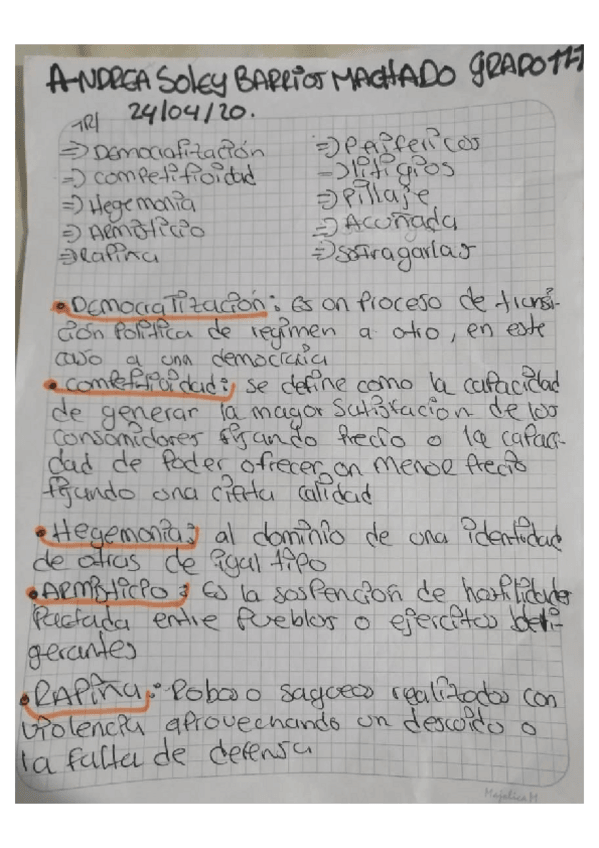 ANDREA Soley BARRIOS MACHADO GRADO 11-1
24/04/20.
TR/
⇒ DEMOCratización
⇒ competitividad
⇒ Hegemonia
⇒ ARMisticio
⇒ Rapiña
⇒ Perifericos
⇒ litigios
⇒ Pillaje
⇒ Acuñada
⇒ sofragarlas
• DEMOCRATIZACIÓN: Es un proceso de transi-
ción politica de regimen a otro, en este
caso a una democracia
• competitividad: se define como la capacidad
de generar la mayor satisfacion de los
consumidores fijando Precio o la capaci-
dad de Poder ofrecer un menor Precio
fijando una cierta calidad
• Hegemonia: al dominio de una identidad
de otras de igual tipo
• ARMisticio: Es la suspención de hostilidades
Pactada entre Pueblos o ejercitos beli-
gerantes
• RAPIÑA: Robos o saqueos realizados con
violencia aprovechando un descuido o
la falta de defensa